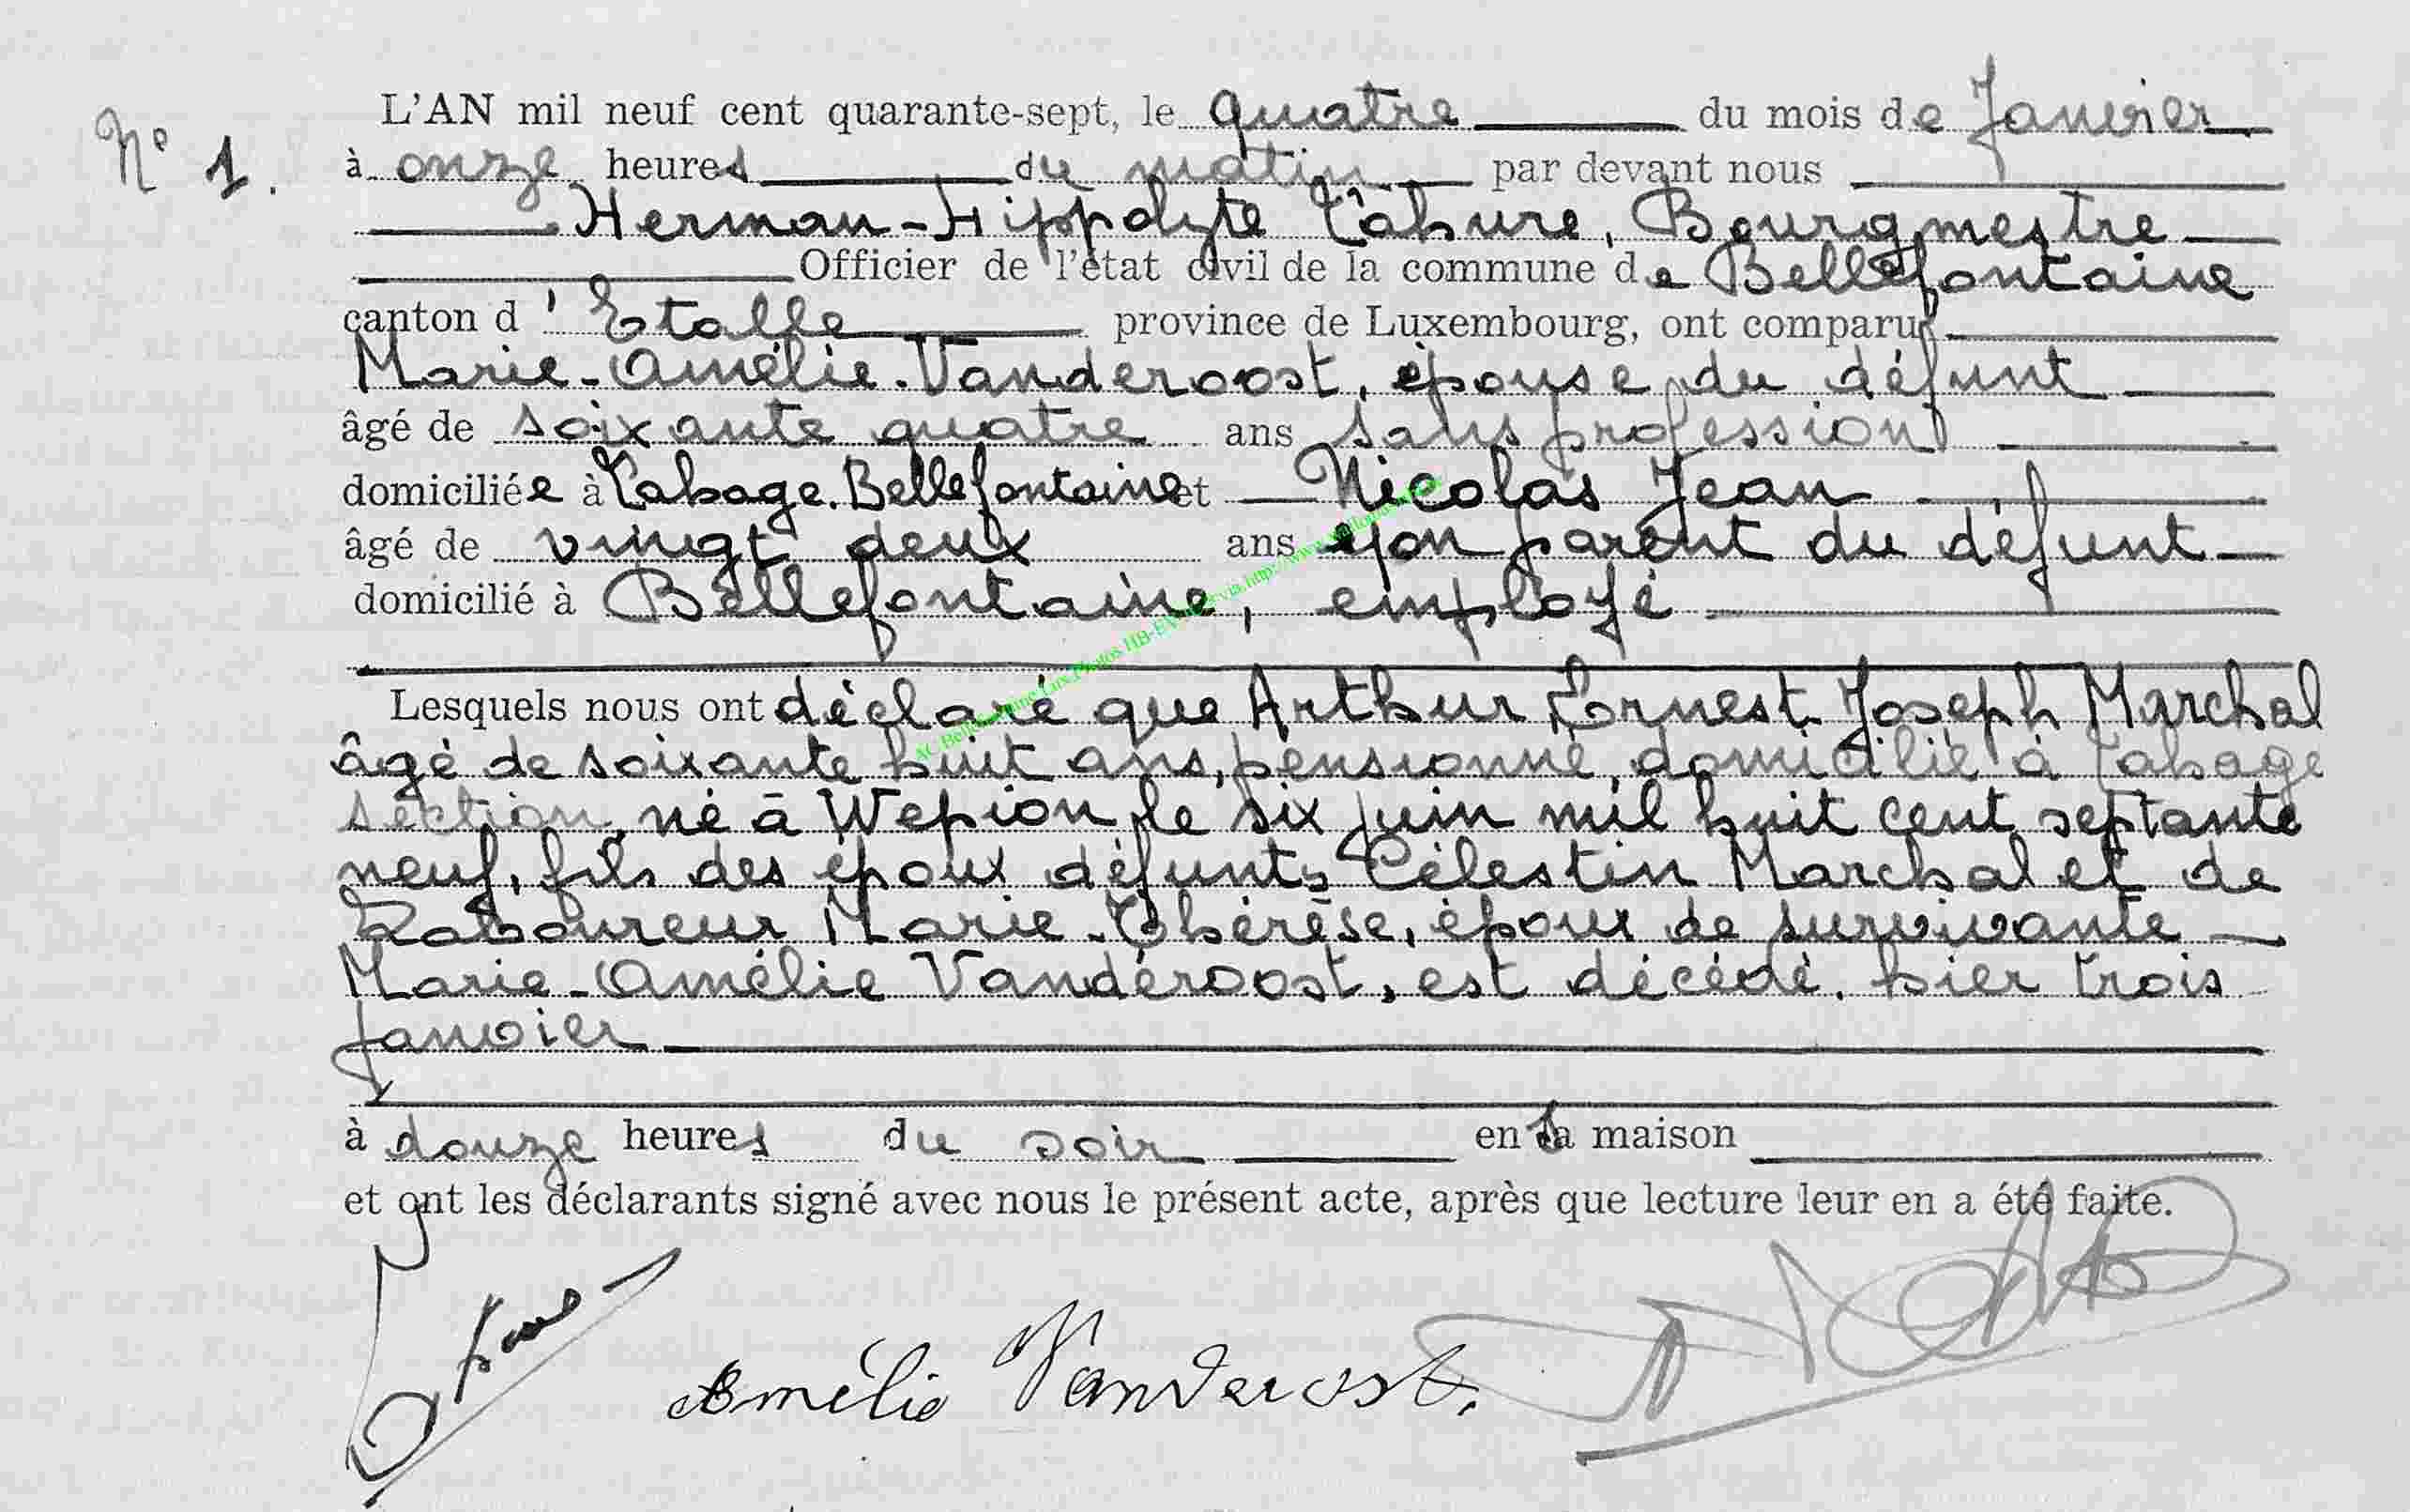 N° 1.
L'AN mil neuf cent quarante-sept, le quatre du mois de Janvier
à onze heures du matin par devant nous
Herman-Hippolyte Lahure, Bourgmestre
Officier de l'état civil de la commune de Bellefontaine
canton d'Etalle province de Luxembourg, ont comparu
Marie-Amélie-Vanderoost, épouse du défunt
âgé de soixante quatre ans sans profession
domiciliée à Lahage.Bellefontaine et Nicolas Jean
âgé de vingt deux ans non parent du défunt
domicilié à Bellefontaine, employé
Lesquels nous ont déclaré que Arthur Ernest Joseph Marchal
âgé de soixante huit ans, pensionné, domicilié à Lahage
section, né à Wepion le six juin mil huit cent septante
neuf, fils des époux défunts Célestin Marchal et de
Laboureur Marie-Thérèse, époux de survivante
Marie-Amélie Vandéroost, est décédé. hier trois
janvier
à douze heures du soir en sa maison
et ont les déclarants signé avec nous le présent acte, après que lecture leur en a été faite.
Amélie Vanderoost.